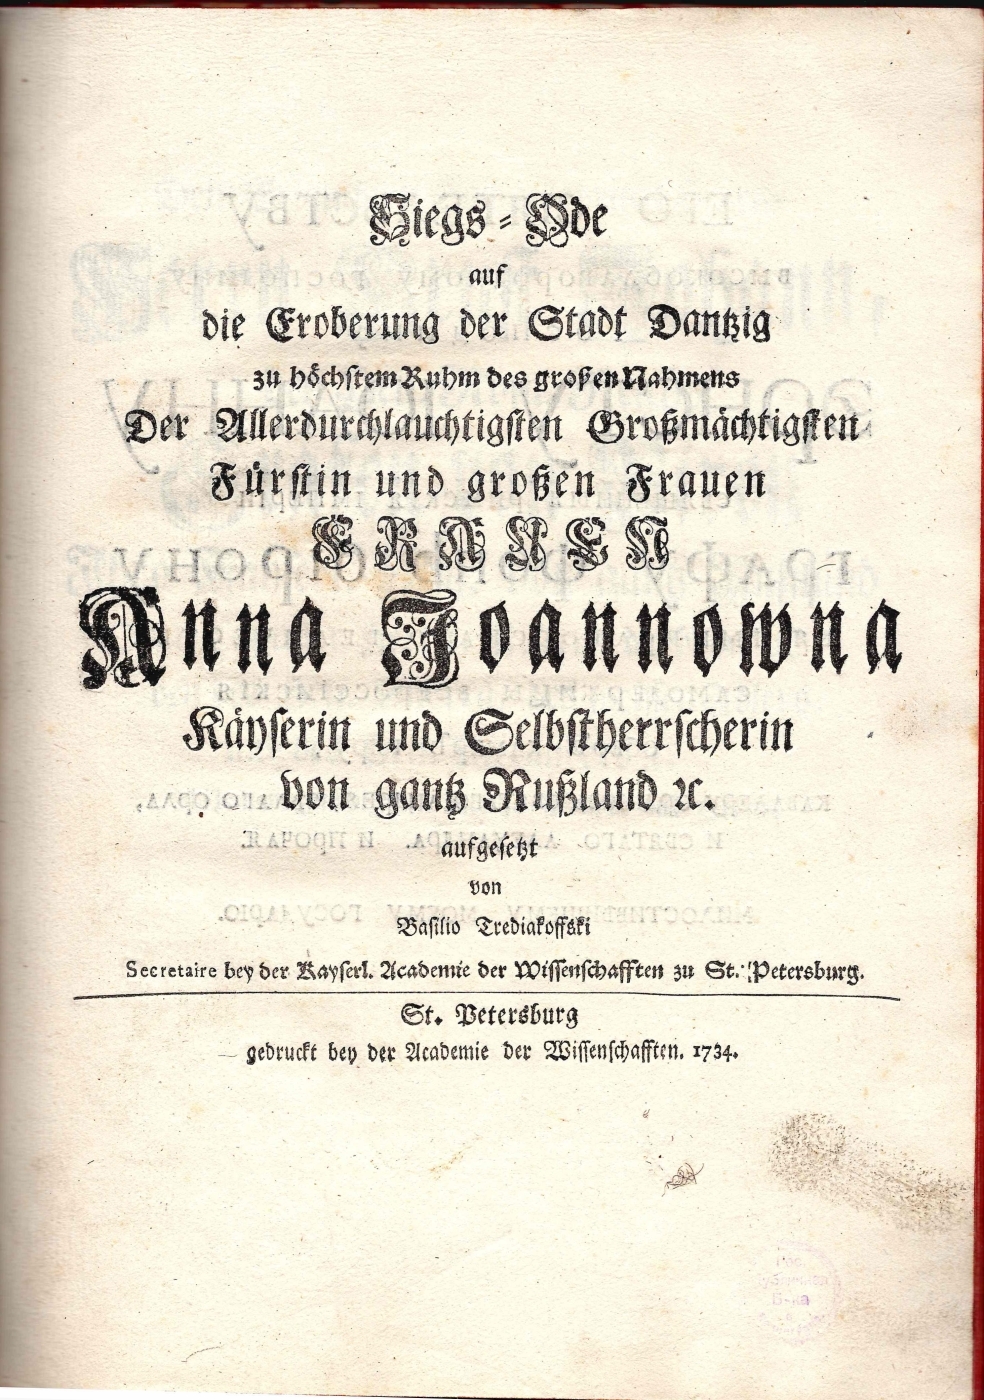 Siegs-Ode
auf
die Eroberung der Stadt Dantzig
zu höchstem Ruhm des großen Nahmens
Der Allerdurchlauchtigsten Großmächtigsten
Fürstin und großen Frauen
FRAUEN
Anna Joannowna
Käyserin und Selbstherrscherin
von gantz Rußland ꝛc.
aufgesetzt
von
Basilio Trediakoffski
Secretaire bey der Kayserl. Academie der Wissenschafften zu St. Petersburg.
St. Petersburg
gedruckt bey der Academie der Wissenschafften. 1734.